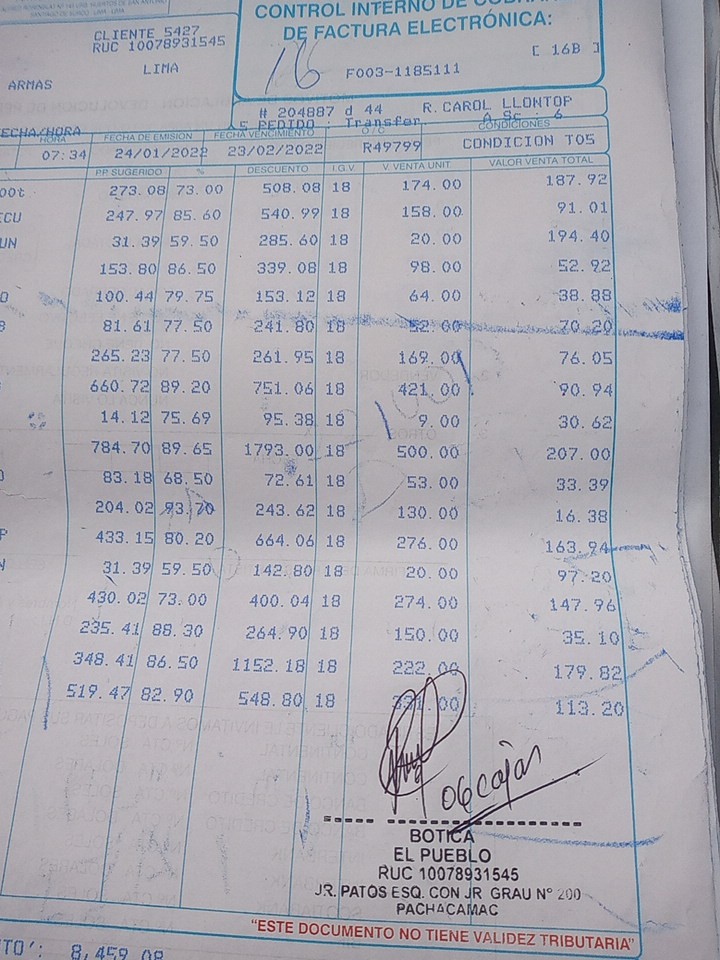 CONTROL INTERNO DE COBRANZA
DE FACTURA ELECTRÓNICA:
CLIENTE 5427
RUC 10078931545
LIMA
ARMAS
16
[ 16B ]
F003-1185111
# 204887 d 44 R. CAROL LLONTOP
PEDIDO : Transfer. A Sc : 6
FECHA/HORA
HORA FECHA DE EMISION FECHA VENCIMIENTO O / C CONDICIONES
07:34 24/01/2022 23/02/2022 R49799 CONDICION T05
P.P. SUGERIDO % DESCUENTO I.G.V. V. VENTA UNIT. VALOR VENTA TOTAL
oot 273.08 73.00 508.08 18 174.00 187.92
ECU 247.97 85.60 540.99 18 158.00 91.01
UN 31.39 59.50 285.60 18 20.00 194.40
153.80 86.50 339.08 18 98.00 52.92
100.44 79.75 153.12 18 64.00 38.88
81.61 77.50 241.80 18 52.00 70.20
265.23 77.50 261.95 18 169.00 76.05
660.72 89.20 751.06 18 421.00 90.94
14.12 75.69 95.38 18 9.00 30.62
784.70 89.65 1793.00 18 500.00 207.00
83.18 68.50 72.61 18 53.00 33.39
204.02 93.70 243.62 18 130.00 16.38
433.15 80.20 664.06 18 276.00 163.94
31.39 59.50 142.80 18 20.00 97.20
430.02 73.00 400.04 18 274.00 147.96
235.41 88.30 264.90 18 150.00 35.10
348.41 86.50 1152.18 18 222.00 179.82
519.47 82.90 548.80 18 331.00 113.20
06 cajas
BOTICA
EL PUEBLO
RUC 10078931545
JR. PATOS ESQ. CON JR GRAU N° 200
PACHACAMAC
"ESTE DOCUMENTO NO TIENE VALIDEZ TRIBUTARIA"
TO': 8,459.08